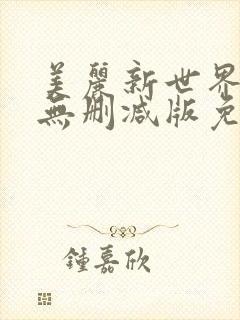 美麗新世界
無刪减版免
鍾嘉欣